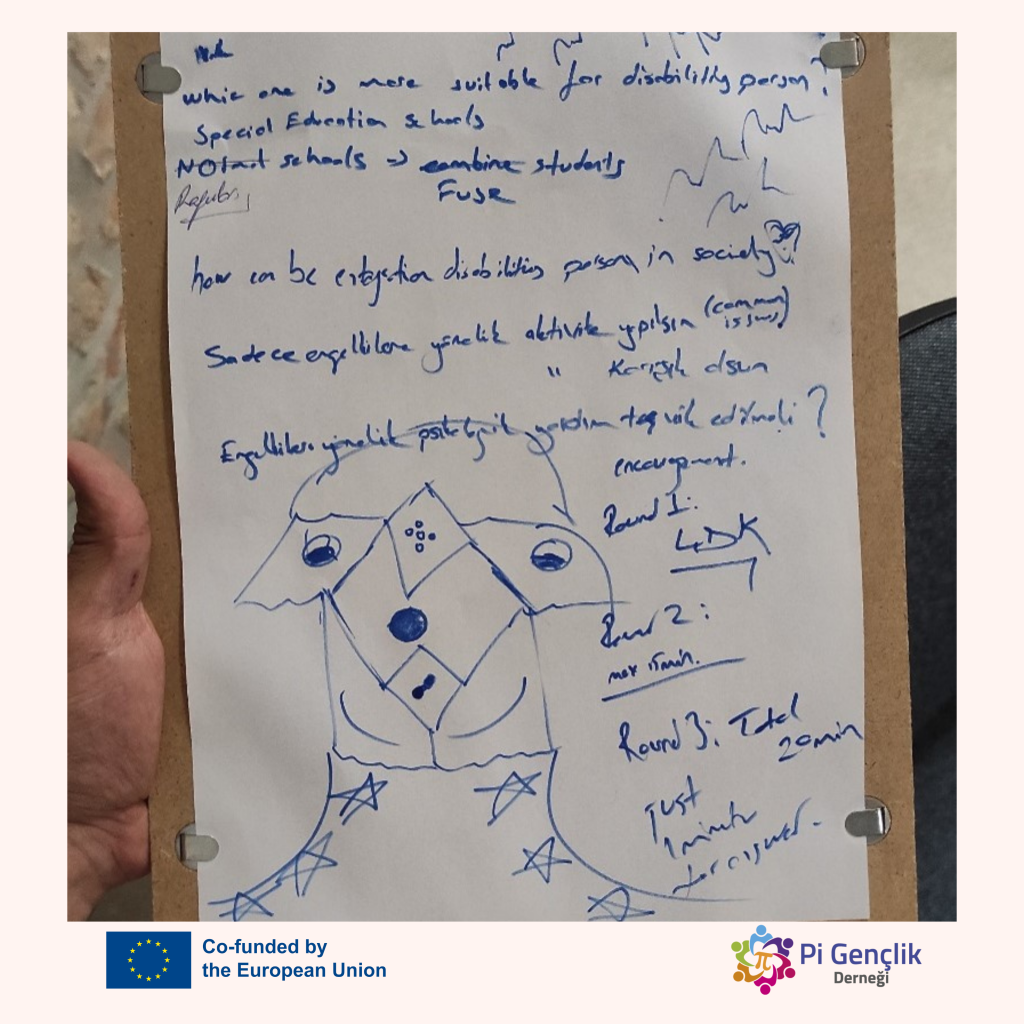 whic one is more suitable for disability person?
Special Education schools
NOTmt schools → combine students
Regular
Fuse
how can be entegration disabilities person in society?
Sadece engellilere yönelik aktivite yapılsın (common issues)
" Karışık olsun
Engellilere yönelik psikolojik yardım teşvik edilmeli?
encouragement.
Round 1:
4DK
Round 2:
max 15min.
Round 3: Total
20min
just
1 minute
for answer.
Co-funded by
the European Union
Pi Gençlik
Derneği